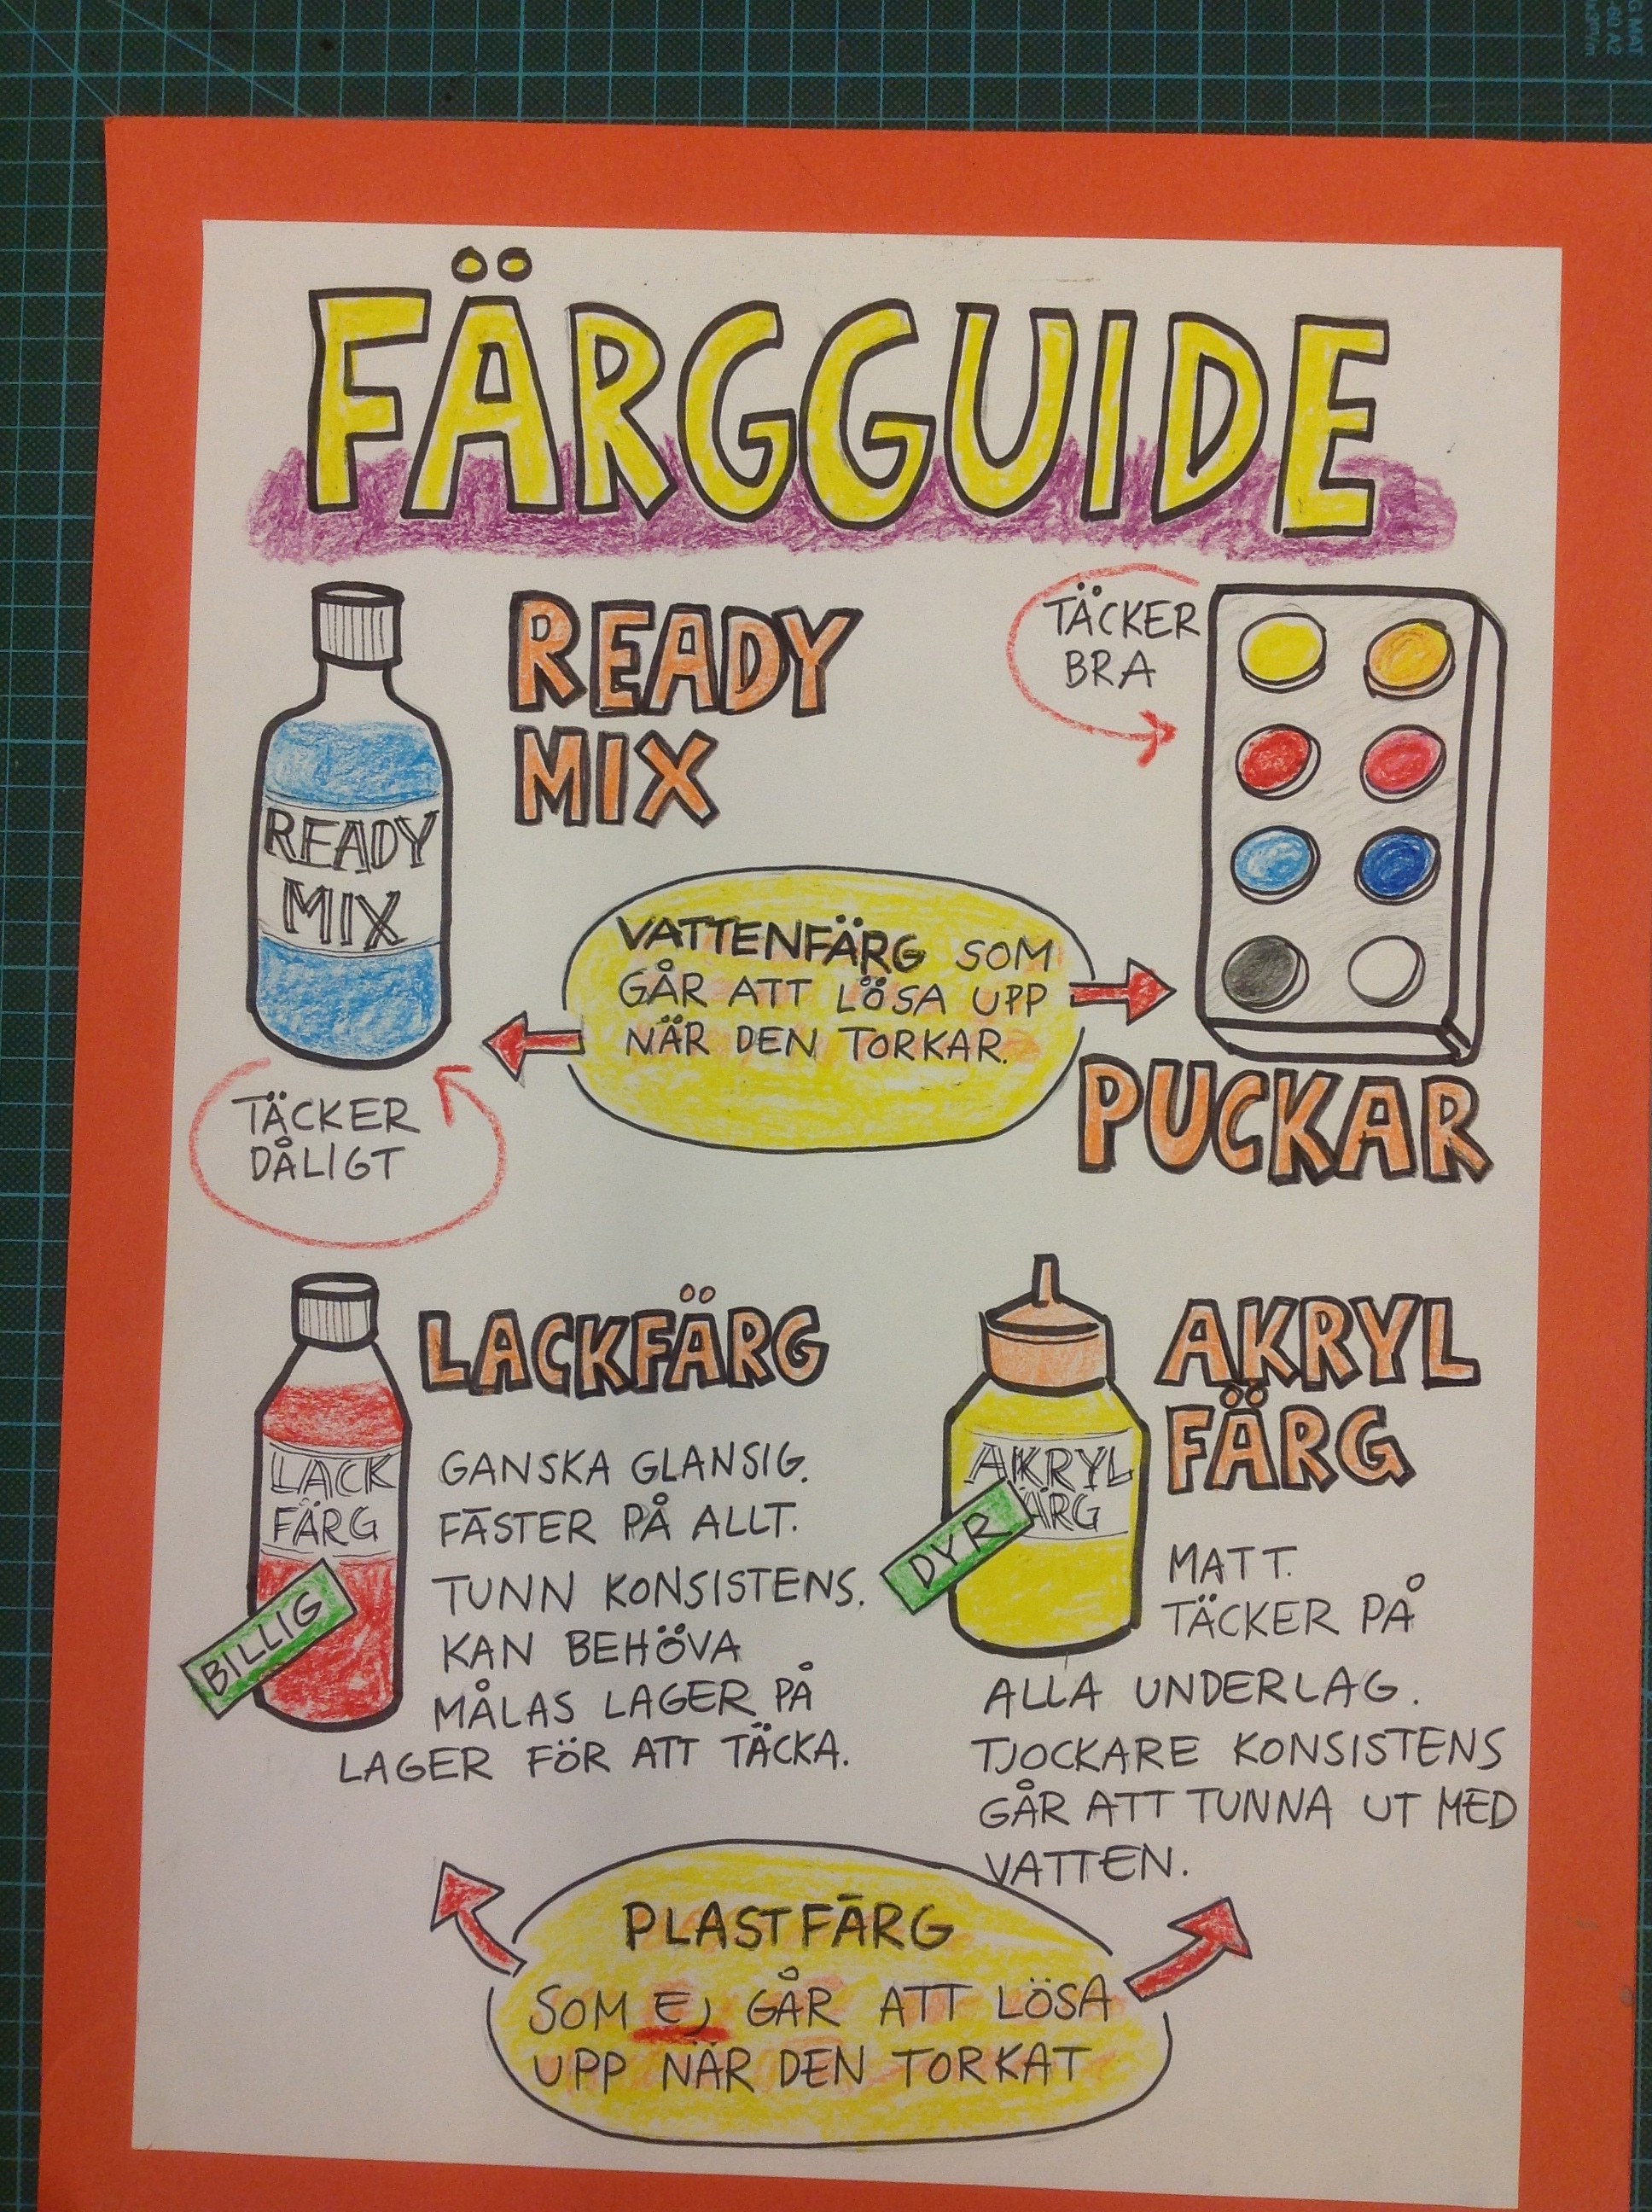 FÄRGGUIDE
READY
MIX
READY
MIX
TÄCKER
DÅLIGT
VATTENFÄRG SOM
GÅR ATT LÖSA UPP
NÄR DEN TORKAR.
TÄCKER
BRA
PUCKAR
LACKFÄRG
LACK
FÄRG
BILLIG
GANSKA GLANSIG.
FÄSTER PÅ ALLT.
TUNN KONSISTENS.
KAN BEHÖVA
MÅLAS LAGER PÅ
LAGER FÖR ATT TÄCKA.
AKRYL
FÄRG
AKRYL
ÄRG
DYR
MATT.
TÄCKER PÅ
ALLA UNDERLAG.
TJOCKARE KONSISTENS
GÅR ATT TUNNA UT MED
VATTEN.
PLASTFÄRG
SOM EJ GÅR ATT LÖSA
UPP NÄR DEN TORKAT